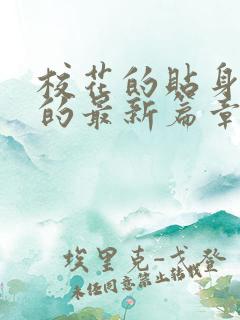 校花的贴身
的最新篇章
埃里克-戈登
未经同意禁止转载